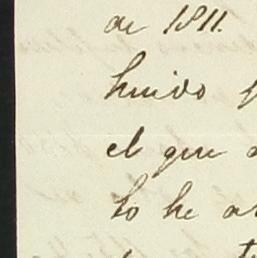 de 1811.
huido
el que
lo he